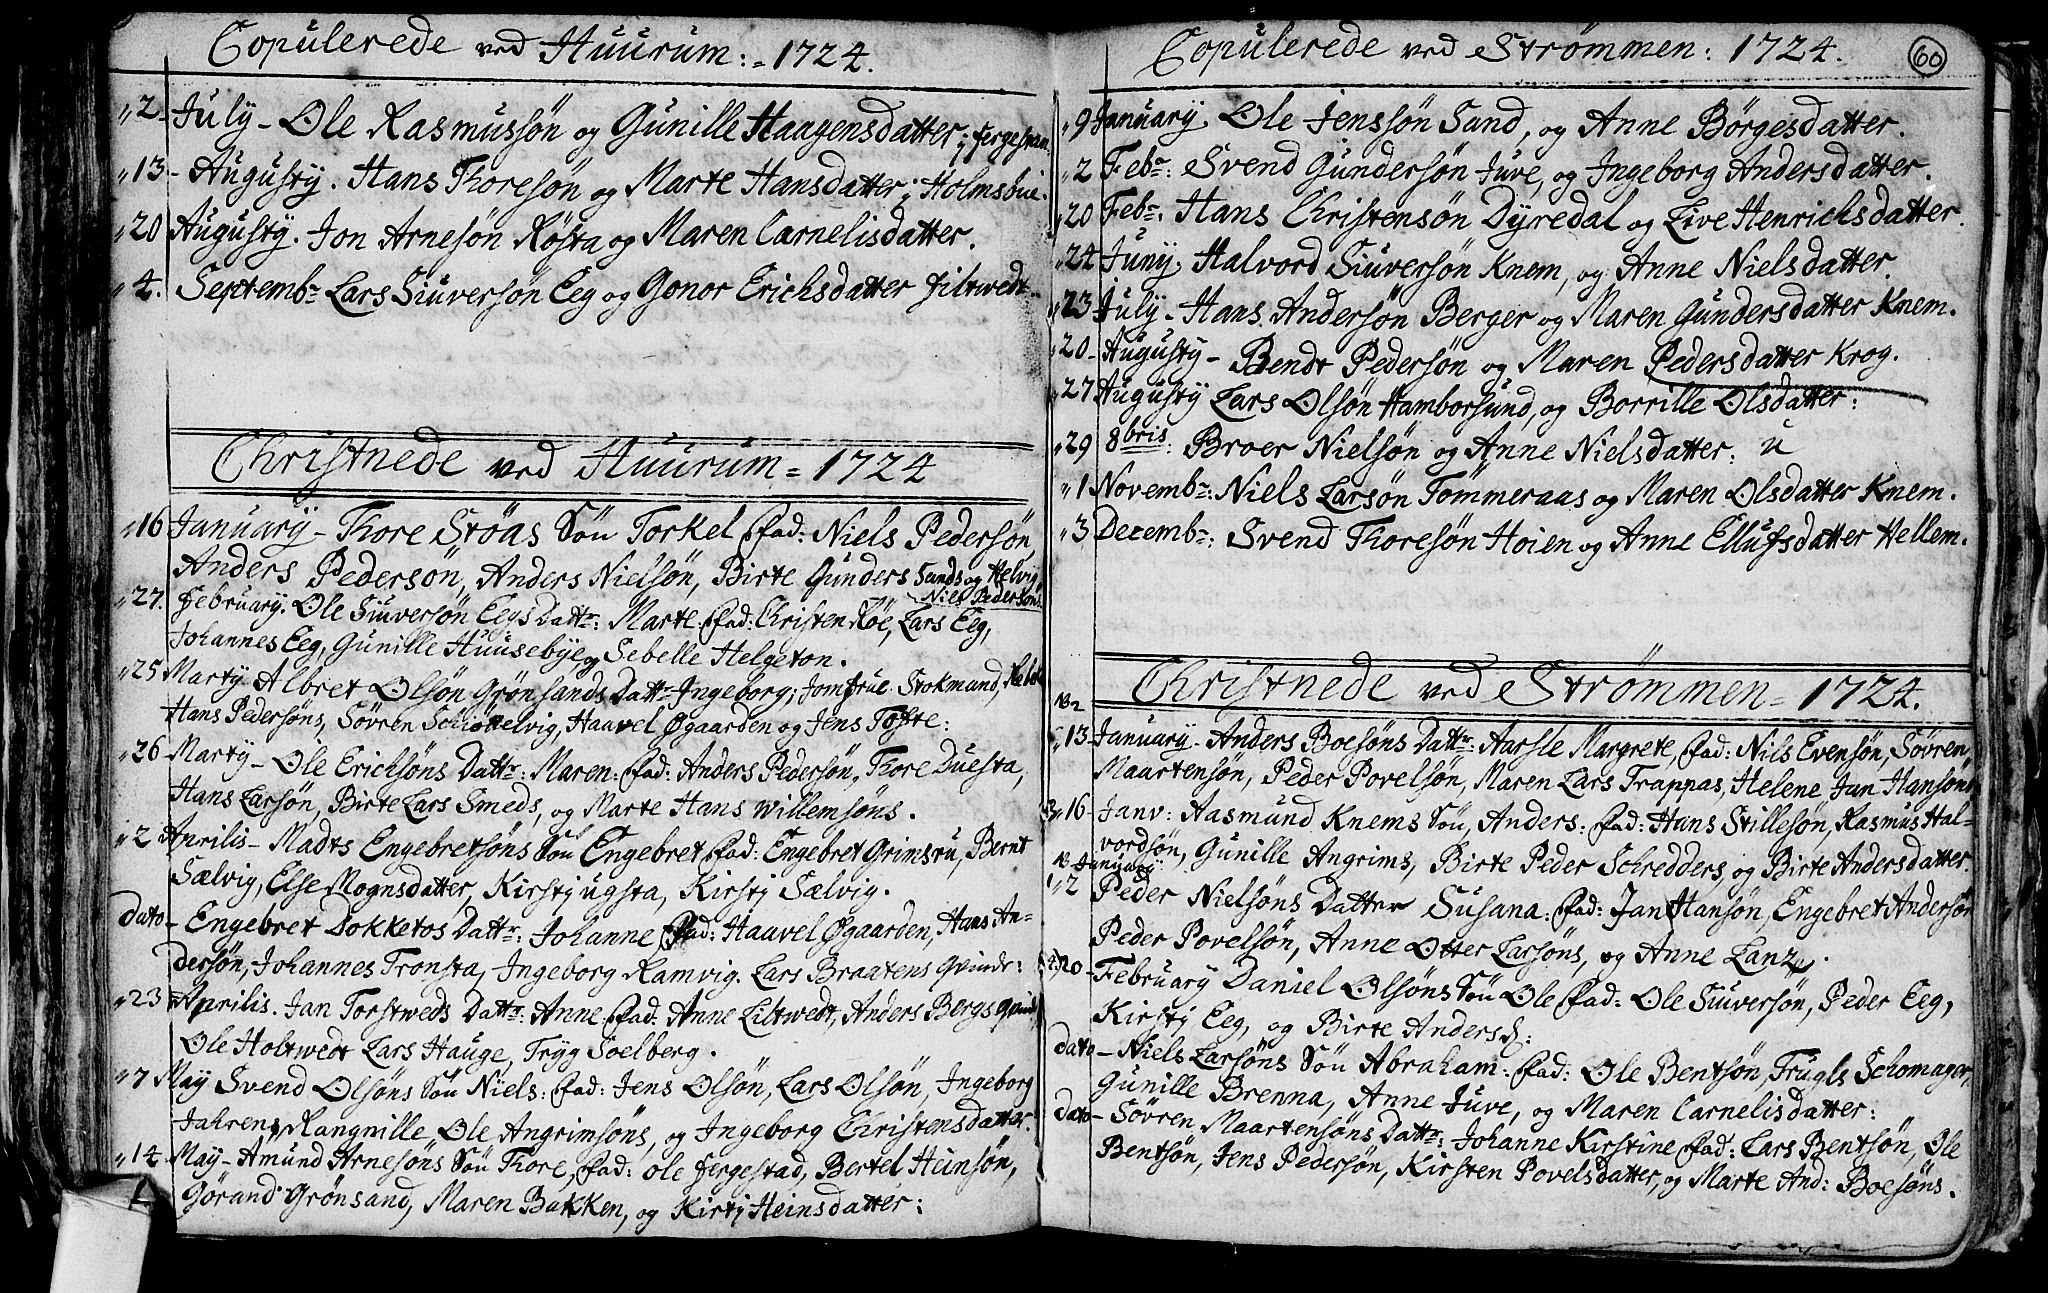 Copulerede ved Huurum: = 1724.
„2 - July - Ole Rasmussøn og Gunille Haagensdatter;
„13 - Augusty. Hans Thoresøn og Marte Hansdatter; Holmsbue.
„20 Augusty. Jon Arnesøn Røsta og Maren Carnelisdatter.
„4. Septembr Lars Siuversøn Eeg og Gonor Erichsdatter filtwedt
Christnede ved Huurum = 1724
„16 January - Thore Støas Søn Torkel fad: Niels Pedersøn,
Anders Pedersøn, Anders Nielsøn, Birte Gunders Sands og Helvig
Niels Pedersøns.
„27. February. Ole Siuversøn Eegs Dattr: Marte. fad: Christen Røe, Lars Eeg,
Johannes Eeg, Gunille Huusebye og Sebelle Helgeton.
„25 Marty Albret Olsøn Grønsands Dattr Ingeborg; Jomfrue Stokmund,
Hans Pedersøns, Søvren Schiøttelvig, Haavel Øgaarden og Jens Tofte:
„26 Marty - Ole Erichsøns Dattr: Maren: fad: Anders Pedersøn, Thore Duesta,
Hans Larsøn, Birte Lars Smeds, og Marte Hans Willemsøns.
„2 Aprilis - Madts Engebretsøns Søn Engebret fad: Engebret Grimsru, Bernt
Sælvig, Else Mognsdatter, Kirstj ugsta, Kirstj Sælvig.
dato - Engebret Dokketos Dattr: Johanne fad: Haavel Øgaarden, Hans An=
dersøn, Johannes Tronsta, Ingeborg Ramvig. Lars Braatens Qvinde:
„23 Aprilis. Jan Torstweds Dattr: Anne fad: Anne Filtwedt, Anders Bergs Qvinde
Ole Holtwedt Lars Hauge, Tryg Soelberg.
„7 May Svend Olsøns Søn Niels: fad: Jens Olsøn, Lars Olsøn, Ingeborg
Jahrens, Rangnille Ole Angrimsøns, og Ingeborg Christensdatter.
„14 May - Amund Arnesøns Søn Thore, fad: Ole fergestad, Bertel Heinsøn,
Gorand Grønsand, Maren Bakken, og Kirstj Heinsdatter:
Copulerede ved Strømmen: 1724.
60
„9 January. Ole Jenssøn Sand, og Anne Børgesdatter.
„2 Febr: Svend Gundersøn Juve, og Ingeborg Andersdatter.
„20 Febr. Hans Christensøn Dyredal og Live Henrichsdatter.
„24 Juny. Halvord Siuversøn Knem, og Anne Nielsdatter.
„23 July - Hans Andersøn Berger og Maren Gundersdatter Knem.
„20 - Augusty - Bendt Pedersøn og Maren Pedersdatter Krog.
„27 Augusty Lars Olsøn Hamborsund, og Borrille Olsdatter:
„29 8bris: Broer Nielsøn og Anne Nielsdatter:
„1 Novembr: Niels Larsøn Tømmeraas og Maren Olsdatter Knem.
„3 Decembr: Svend Thoresøn Hoien og Anne Ellufsdatter Hellem.
Christnede ved Strømmen = 1724.
„13 January - Anders Boesøns Dattr: Aarsle Margrete, fad: Nils Evensøn, Søvren
Maartensøn, Peder Povelsøn, Maren Lars Trappas, Helene Jan Hansøns
„16 - Janv: Aasmund Knems Søn, Anders: fad: Hans Stillesøn, Rasmus Hal=
vordsøn, Gunille Angrims, Birte Peder Schredders, og Birte Andersdatter.
January
„2 Peder Nielsøns Datter Susana: fad: Jan Hansøn, Engebret Andersøn
Peder Povelsøn, Anne Otter Larsøns, og Anne Lanz.
„20 - February Daniel Olsøns Søn Ole fad: Ole Siuversøn, Peder Eeg,
Kirstj Eeg, og Birte Andersd:
dato - Niels Larsøns Søn Abraham: fad: Ole Bentsøn, Trugls Schomager,
Gunille Brenna, Anne Juve, og Maren Carnelisdatter:
dato - Søvren Maartensøns Dattr: Johanne Kirstine fad: Lars Bentsøn, Ole
Bentsøn, Jens Pedersøn, Kirsten Povelsdatter, og Marte And: Boesøns.